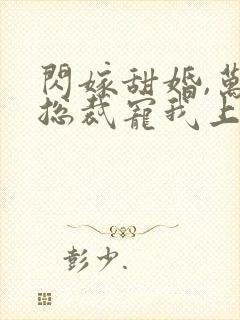 閃嫁甜婚,萬
總裁寵我上
彭少.